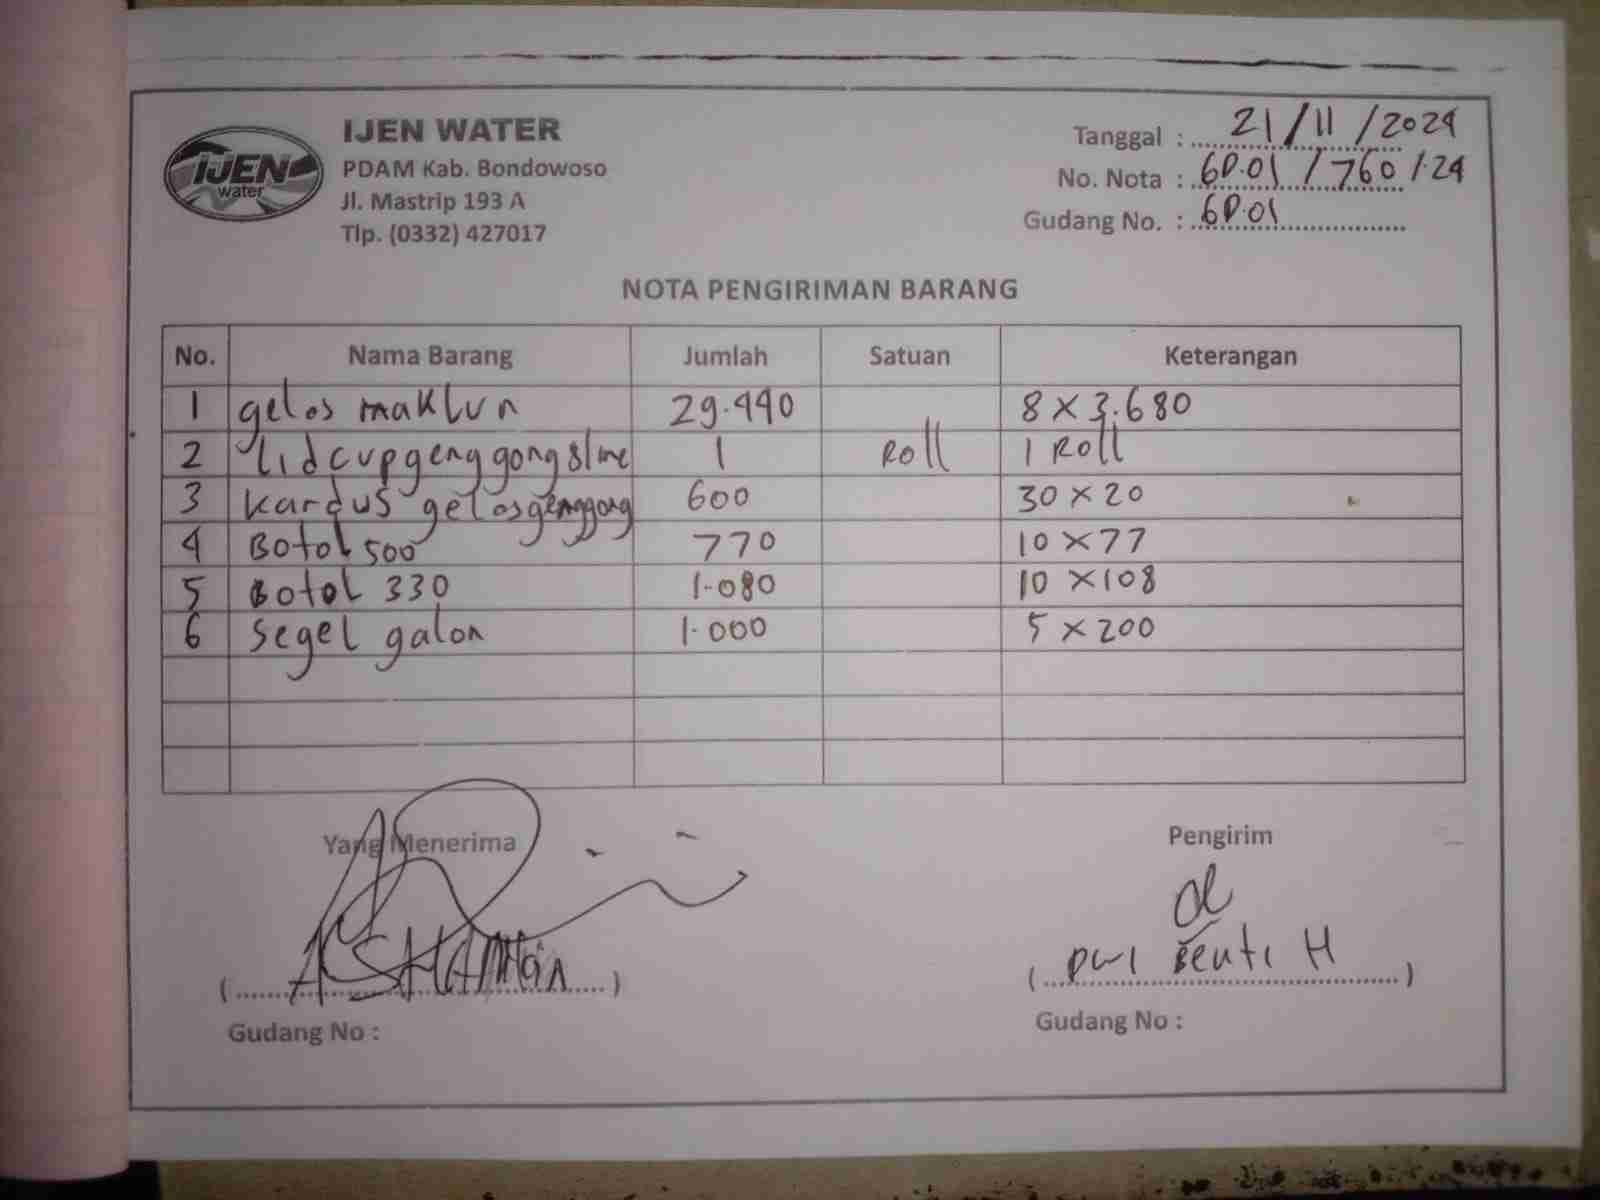 IJEN water
IJEN WATER
PDAM Kab. Bondowoso
Jl. Mastrip 193 A
Tlp. (0332) 427017
Tanggal : 21/11/2024
No. Nota : GD.01/760/.24
Gudang No. : GD.01
NOTA PENGIRIMAN BARANG
No. Nama Barang Jumlah Satuan Keterangan
1 gelas maklun 29.440 8 x 3.680
2 lidcup genggong slime 1 Roll 1 Roll
3 kardus gelas genggong 600 30 x 20
4 Botol 500 770 10 x 77
5 Botol 330 1.080 10 x 108
6 Segel galon 1.000 5 x 200
Yang Menerima Pengirim
( ) ( Dwi H )
Gudang No : Gudang No :